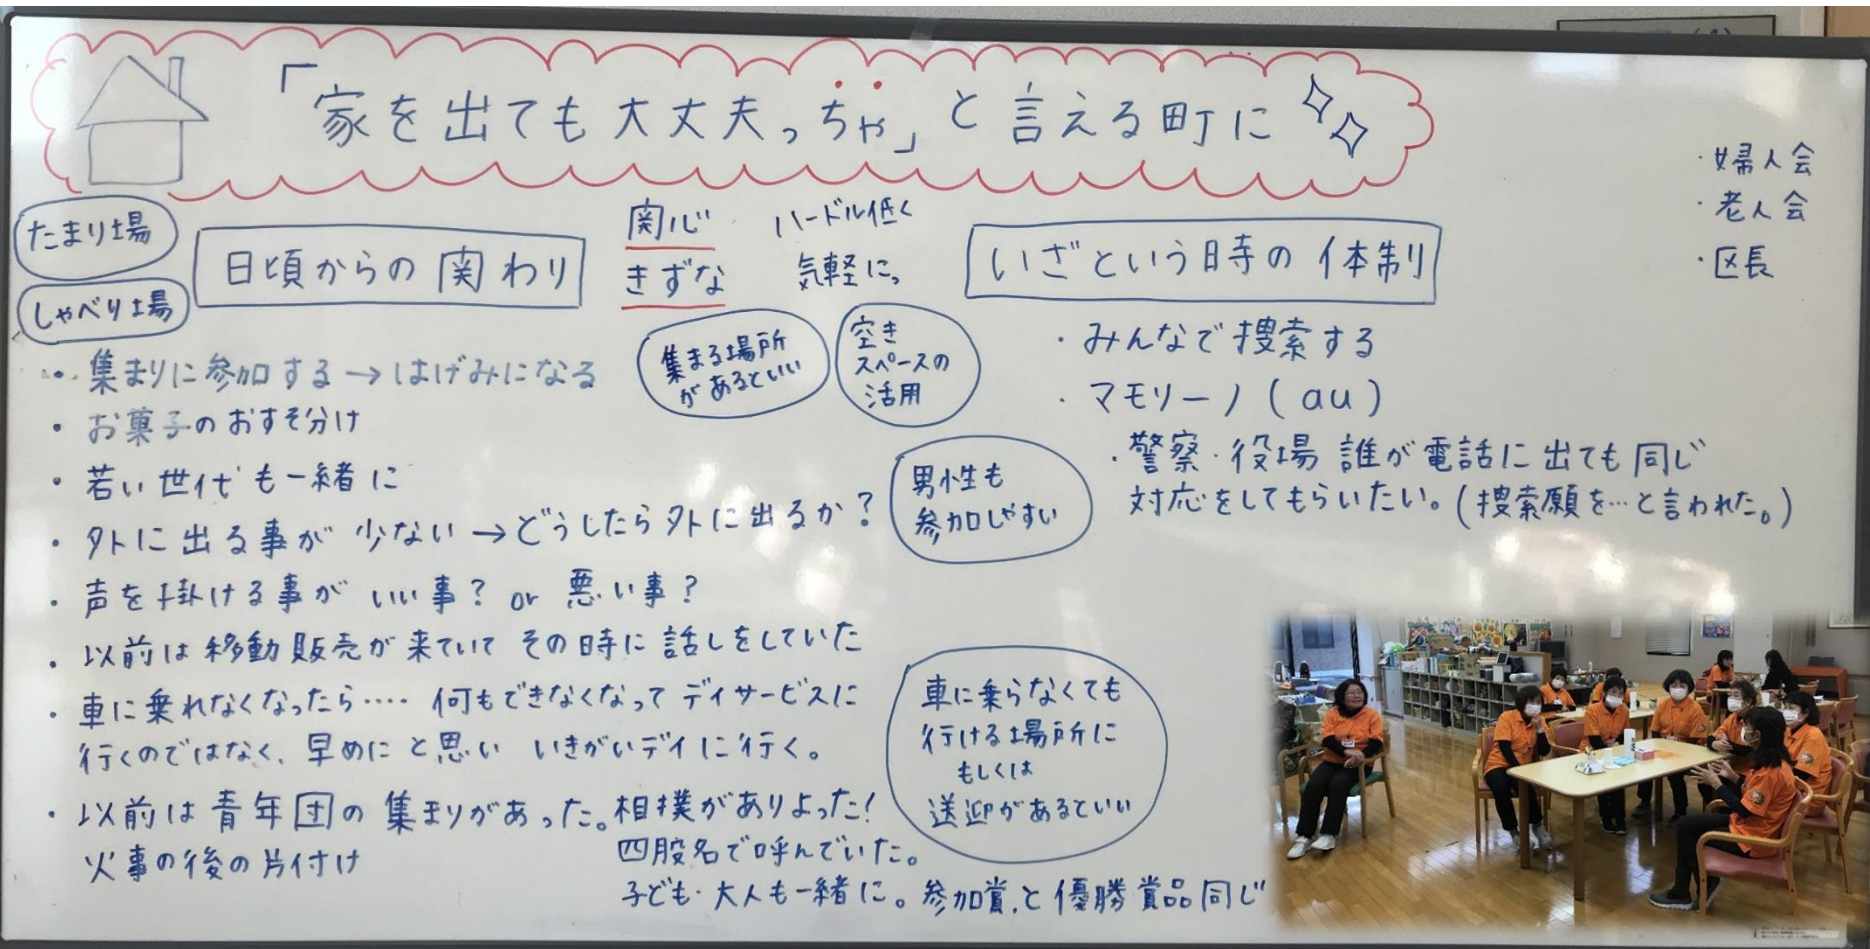 「家を出ても大丈夫っちゃ」と言える町に
・婦人会
・老人会
・区長
たまり場
しゃべり場
日頃からの関わり
関心
きずな
ハードル低く
気軽に。
集まる場所
があるといい
空き
スペースの
活用
・集まりに参加する→はげみになる
・お菓子のおすそ分け
・若い世代も一緒に
・外に出る事が少ない→どうしたら外に出るか?
・声を掛ける事がいい事? or 悪い事?
・以前は移動販売が来ていてその時に話しをしていた
・車に乗れなくなったら…‥何もできなくなってデイサービスに
行くのではなく、早めにと思いいきがいデイに行く。
・以前は青年団の集まりがあった。相撲がありよった!
火事の後の片付け
四股名で呼んでいた。
子ども・大人も一緒に。参加賞、と優勝賞品同じ
男性も
参加しやすい
車に乗らなくても
行ける場所に
もしくは
送迎があるといい
いざという時の体制
・みんなで捜索する
・マモリーノ(au)
・警察・役場 誰が電話に出ても同じ
対応をしてもらいたい。(捜索願を…と言われた。)